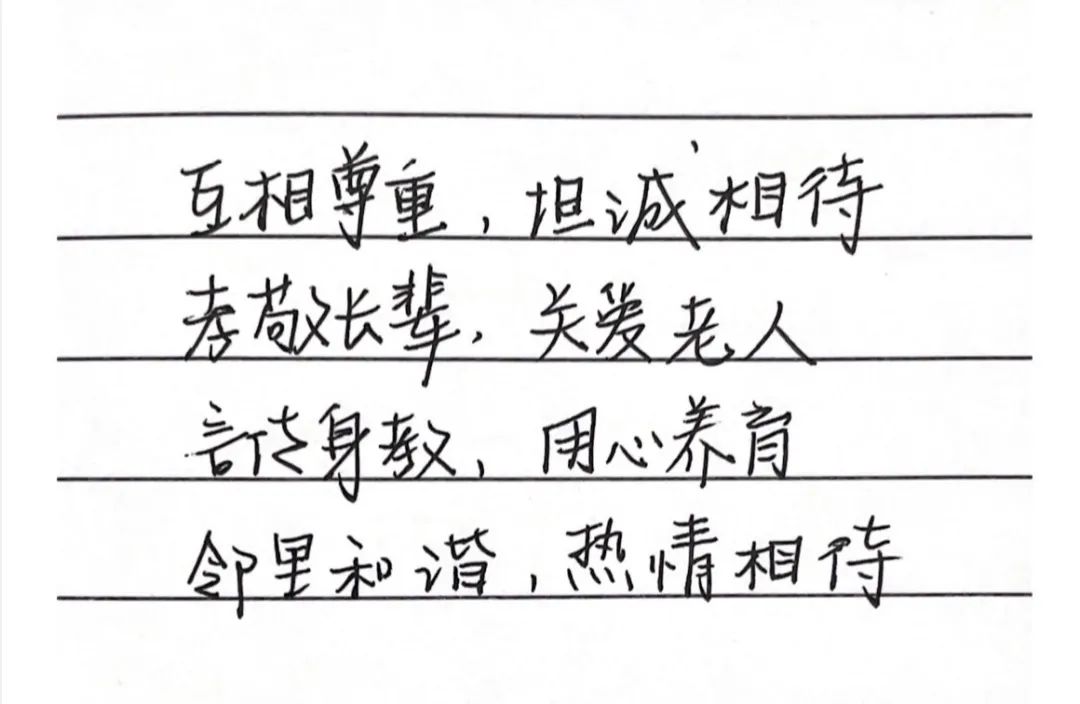 互相尊重，坦诚相待
孝敬长辈，关爱老人
言传身教，用心养育
邻里和谐，热情相待